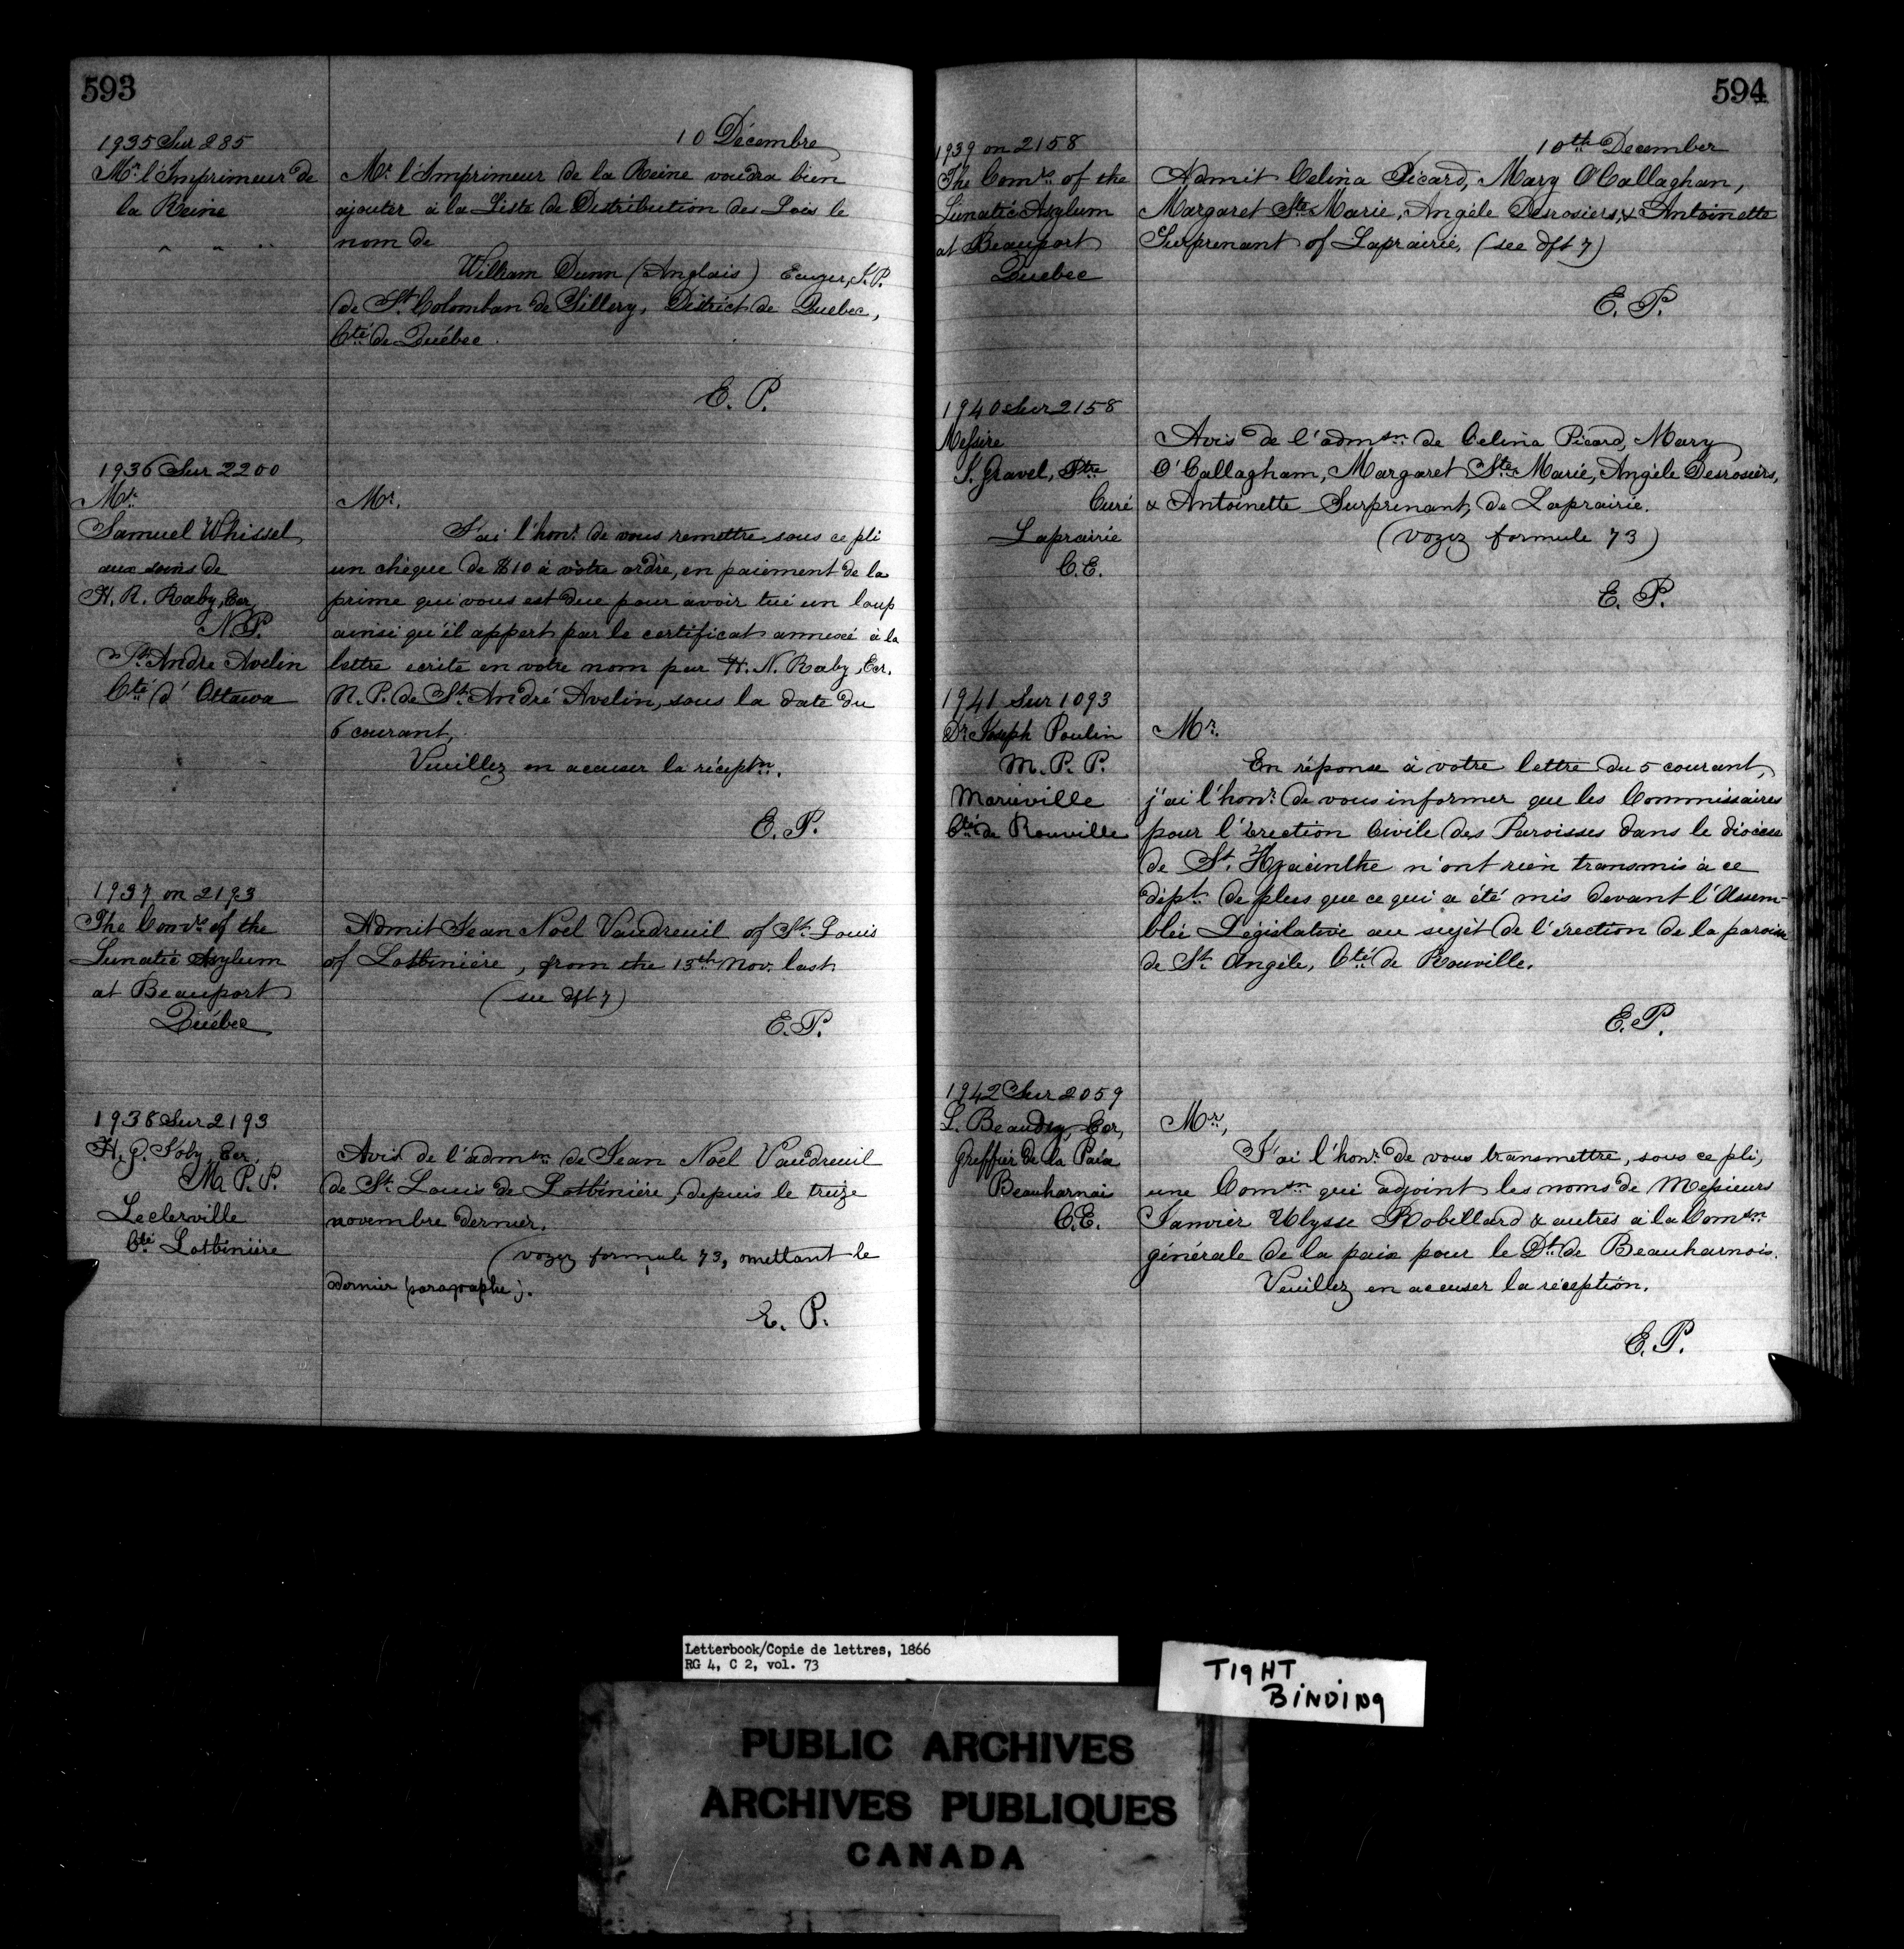 593
10 Décembre
1935 Sur 285
Mr. l'Imprimeur de
la Reine
" " "
Mr. l'Imprimeur de la Reine voudra bien
ajouter à la Liste de Distribution des Lois le
nom de
William Dunn (Anglais) Ecuyer, J.P.
de St. Colomban de Sillery, District de Quebec,
Cté de Québec.
E. P.
1936 Sur 2200
Mr.
Samuel Whissel
aux soins de
H. R. Raby, Ecr,
N.P.
St. André Avelin
Cté d'Ottawa
Mr.
J'ai l'honr. de vous remettre sous ce pli
un chèque de $10 à votre ordre, en paiement de la
prime qui vous est due pour avoir tué un loup
ainsi qu'il appert par le certificat annexé à la
lettre écrite en votre nom par H. N. Raby, Ecr.
N.P. de St. André Avelin, sous la date du
6 courant,
Veuillez en accuser la réceptn.
E. P.
1937 on 2193
The Comrs. of the
Lunatic Asylum
at Beauport
Québec
Admit Jean Noël Vaudreuil of St. Louis
of Lotbinière, from the 13th Nov. last
(see dft 7)
E. P.
1938 Sur 2193
H. G. Joly, Ecr.
M. P. P.
Leclerville
Cté Lotbinière
Avis de l'admsn. de Jean Noël Vaudreuil
de St. Louis de Lotbinière, depuis le treize
novembre dernier.
(voyez formule 73, omettant le
dernier paragraphe).
E. P.
594
10th December
1939 on 2158
The Comrs. of the
Lunatic Asylum
at Beauport
Quebec
Admit Celina Picard, Mary O'Callaghan,
Margaret Ste. Marie, Angèle Desrosiers, & Antoinette
Surprenant of Laprairie, (see dft 7)
E. P.
1940 Sur 2158
Messire
J. Gravel, Ptre
Curé
Laprairie
C.E.
Avis de l'admsn. de Celina Picard, Mary
O'Callagham, Margaret Ste. Marie, Angèle Desrosiers,
& Antoinette Surprenant, de Laprairie.
(voyez formule 73)
E. P.
1941 Sur 1093
Dr. Joseph Poulin
M. P. P.
Marieville
Cté de Rouville
Mr.
En réponse à votre lettre du 5 courant,
j'ai l'honr. de vous informer que les Commissaires
pour l'érection Civile des Paroisses dans le diocèse
de St. Hyacinthe n'ont rien transmis à ce
dépt. de plus que ce qui a été mis devant l'Assem-
blée Législative au sujet de l'érection de la paroisse
de St. Angèle, Cté de Rouville.
E. P.
1942 Sur 2059
L. Beaudry, Ecr,
Greffier de la Paix
Beauharnais
C.E.
Mr,
J'ai l'honr. de vous transmettre, sous ce pli,
une Comsn qui adjoint les noms de Messieurs
Janvier Ulysse Robillard & autres à la Comsn
générale de la paix pour le Dt. de Beauharnois.
Veuillez en accuser la réception.
E. P.
Letterbook/Copie de lettres, 1866
RG 4, C 2, vol. 73
TIGHT
BINDING
PUBLIC ARCHIVES
ARCHIVES PUBLIQUES
CANADA